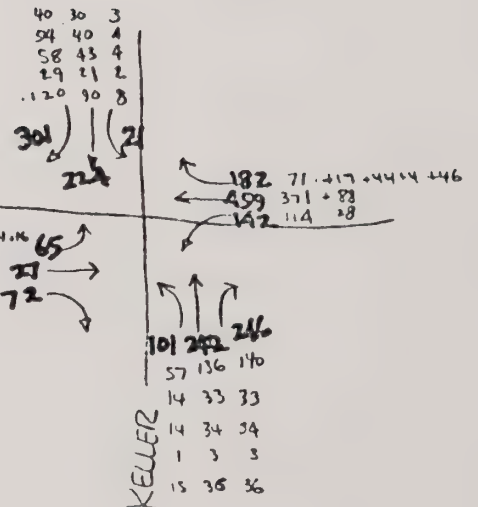 40 30 3
54 40 4
58 43 4
29 21 2
120 90 8
301 224 21
182 71 +17 +44+4 +46
459 371 + 88
142 114 28
65
27
72
101 242 246
57 136 140
14 33 33
14 34 34
1 3 3
15 36 36
KELLER